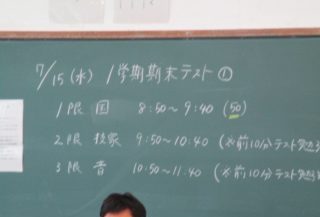 7/15(水) 1学期期末テスト①
1限 国 8:50〜9:40 (50)
2限 技家 9:50〜10:40 (※前10分テスト勉
3限 音 10:50〜11:40 (※前10分テスト勉